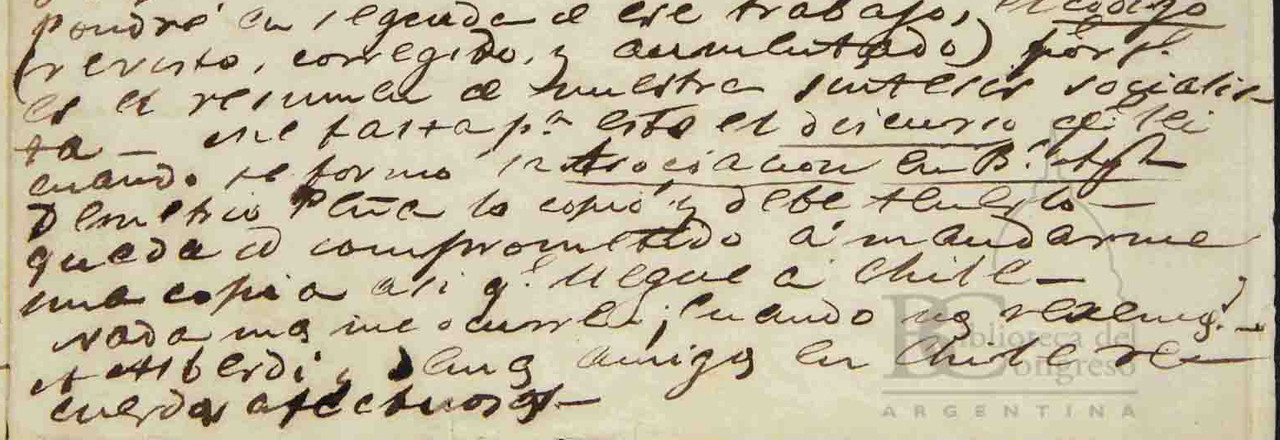 pondré en seguida de ese trabajo, el código
(revisto, corregido, y aumentado) porq.e
es el resumen de nuestra síntesis socialis-
ta — me falta p.a esto el discurso q.e leí
cuando se formó la Asociacion en B.s Ay.s
Demetrio Peña lo copió y debe tenerlo —
queda V. comprometido á mandarme
una copia asi q.e llegue a Chile —
nada mas me ocurre; Cuando nos
et Alberdi y demas amigos en Chile re-
cuerdos afectuosos —
Biblioteca del
Congreso
ARGENTINA